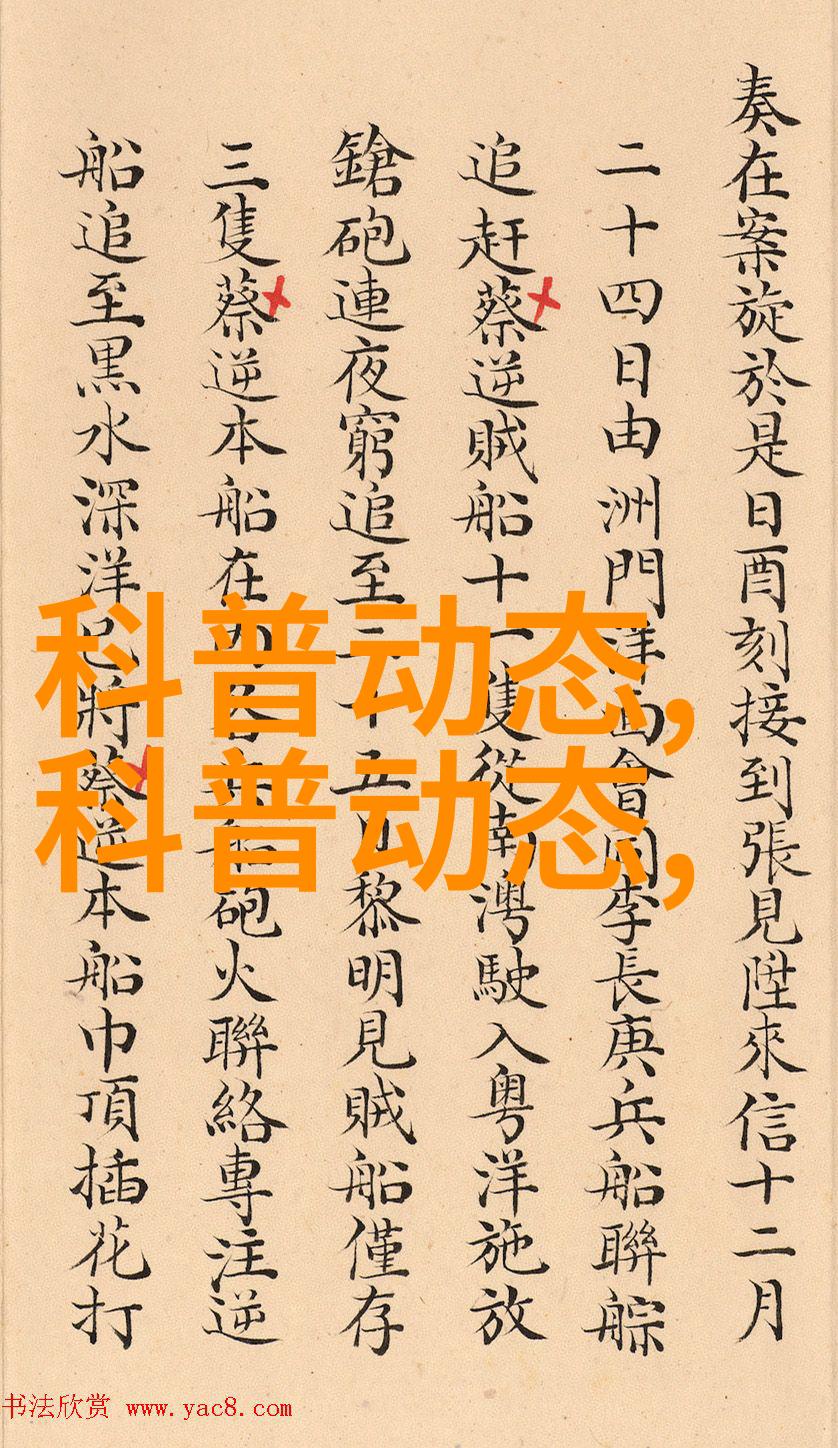 奏在案旋於是日酉刻接到張見陞來信十二月
二十四日由洲門洋面會同李長庚兵船聯䑸
追赶蔡逆賊船十一隻從南灣駛入粤洋施放
鎗砲連夜窮追至二十五日黎明見賊船僅存
三隻蔡逆本船在內各兵船砲火聯絡專注逆
船追至黒水深洋已將蔡逆本船巾頂插花打
科普动态,
科普动态,
书法欣赏 www.yac8.com